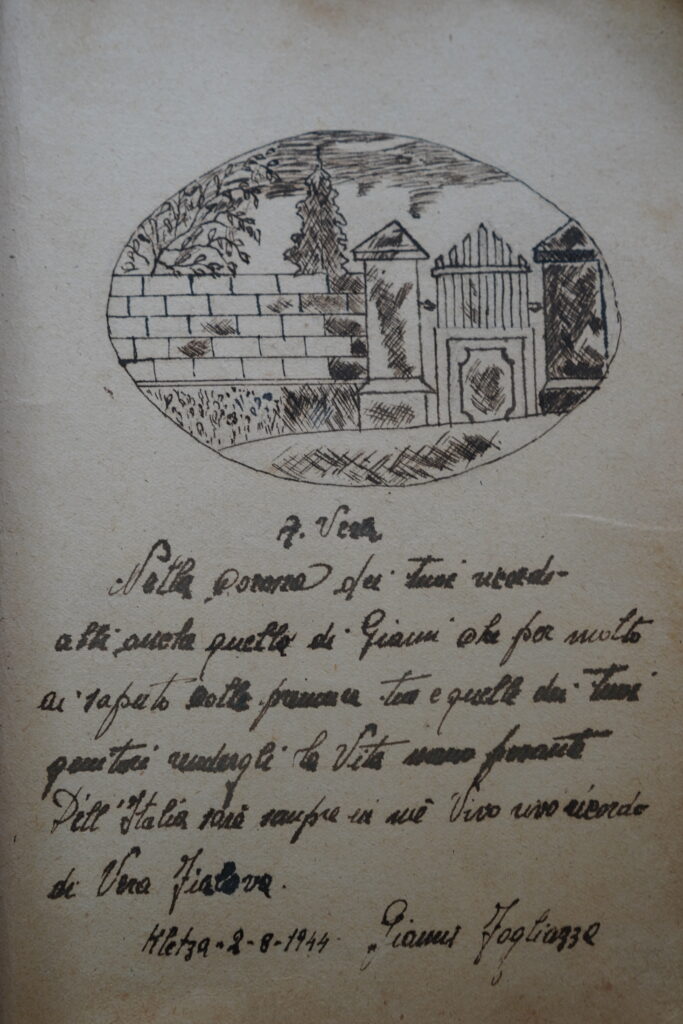 A. Vera
Nella dei tuoi ricordi
abbi anche quello di Gianni che per molto
ai saputo colla premura tua e quella dei tuoi
genitori rendergli la Vita meno pesante
Dell'Italia sarà sempre in me Vivo un ricordo
di Vera Fialova.
Kletza - 2-8-1944 Gianni Fogliazza